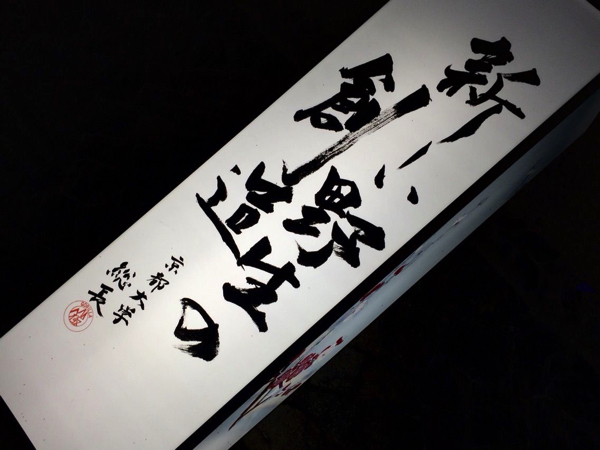 新しい野生の
創造
京都大学
総長